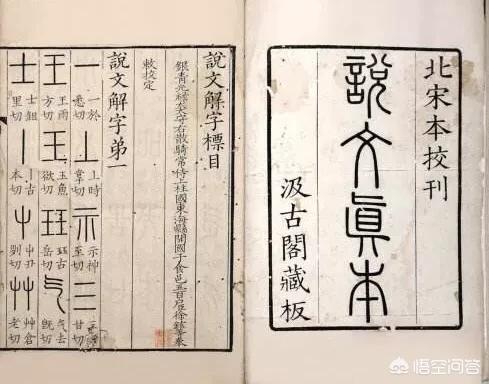 北宋本校刊
說文眞本
汲古閣藏板
說文解字標目
銀青光祿大夫守右散騎常侍上柱國東海縣開國子食邑五百戶臣徐鉉等奉
敕校定
說文解字第一
一 一於悉切 丄 上時掌切 示 示神至切 三 甘切
王 王雨方切 玉 玉魚欲切 玨 玨古岳切 气 气去旣切
士 士鉏里切 丨 丨古本切 屮 屮丑列切 艸 艸倉老切
悟空问答